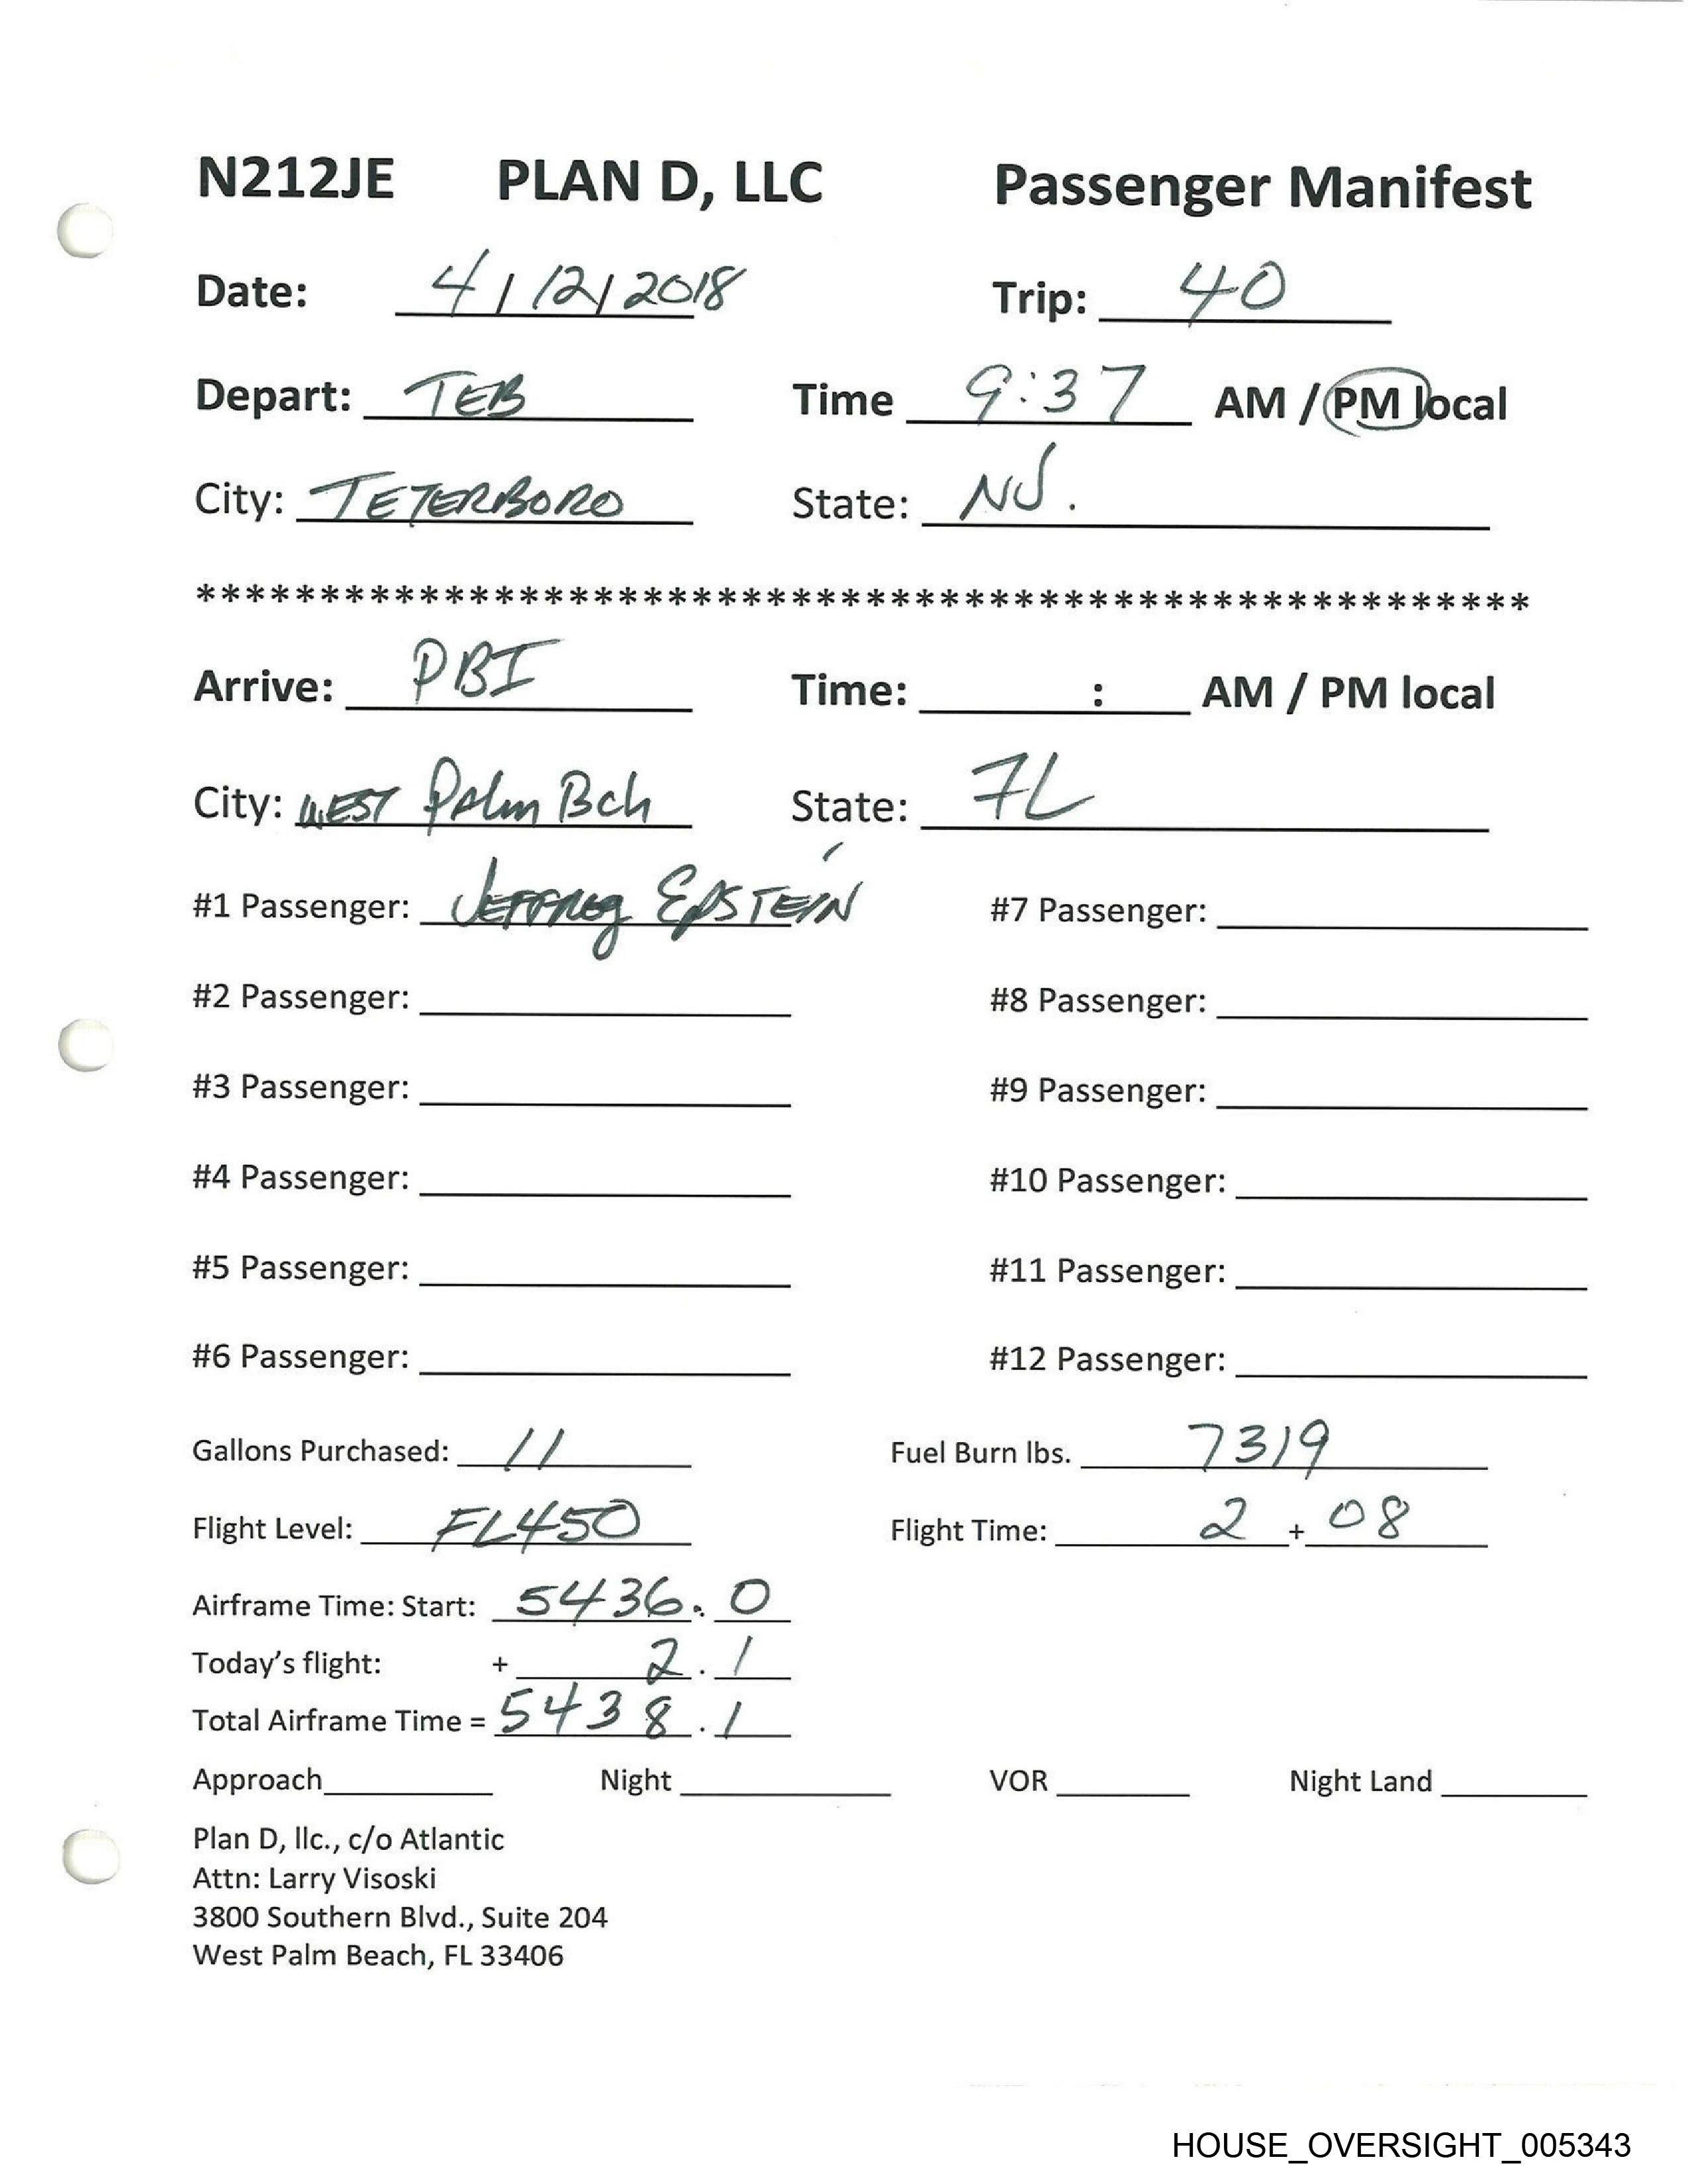 N212JE PLAN D, LLC Passenger Manifest
Date: 4/12/2018 Trip: 40
Depart: TEB Time 9:37 AM / PM local
City: TETERBORO State: NJ.
******************************************************
Arrive: PBI Time: : AM / PM local
City: WEST Palm Bch State: FL
#1 Passenger: Jeffrey Epstein #7 Passenger:
#2 Passenger: #8 Passenger:
#3 Passenger: #9 Passenger:
#4 Passenger: #10 Passenger:
#5 Passenger: #11 Passenger:
#6 Passenger: #12 Passenger:
Gallons Purchased: 11 Fuel Burn lbs. 7319
Flight Level: FL450 Flight Time: 2 + 08
Airframe Time: Start: 5436.0
Today's flight: + 2.1
Total Airframe Time = 5438.1
Approach Night VOR Night Land
Plan D, llc., c/o Atlantic
Attn: Larry Visoski
3800 Southern Blvd., Suite 204
West Palm Beach, FL 33406
HOUSE_OVERSIGHT_005343